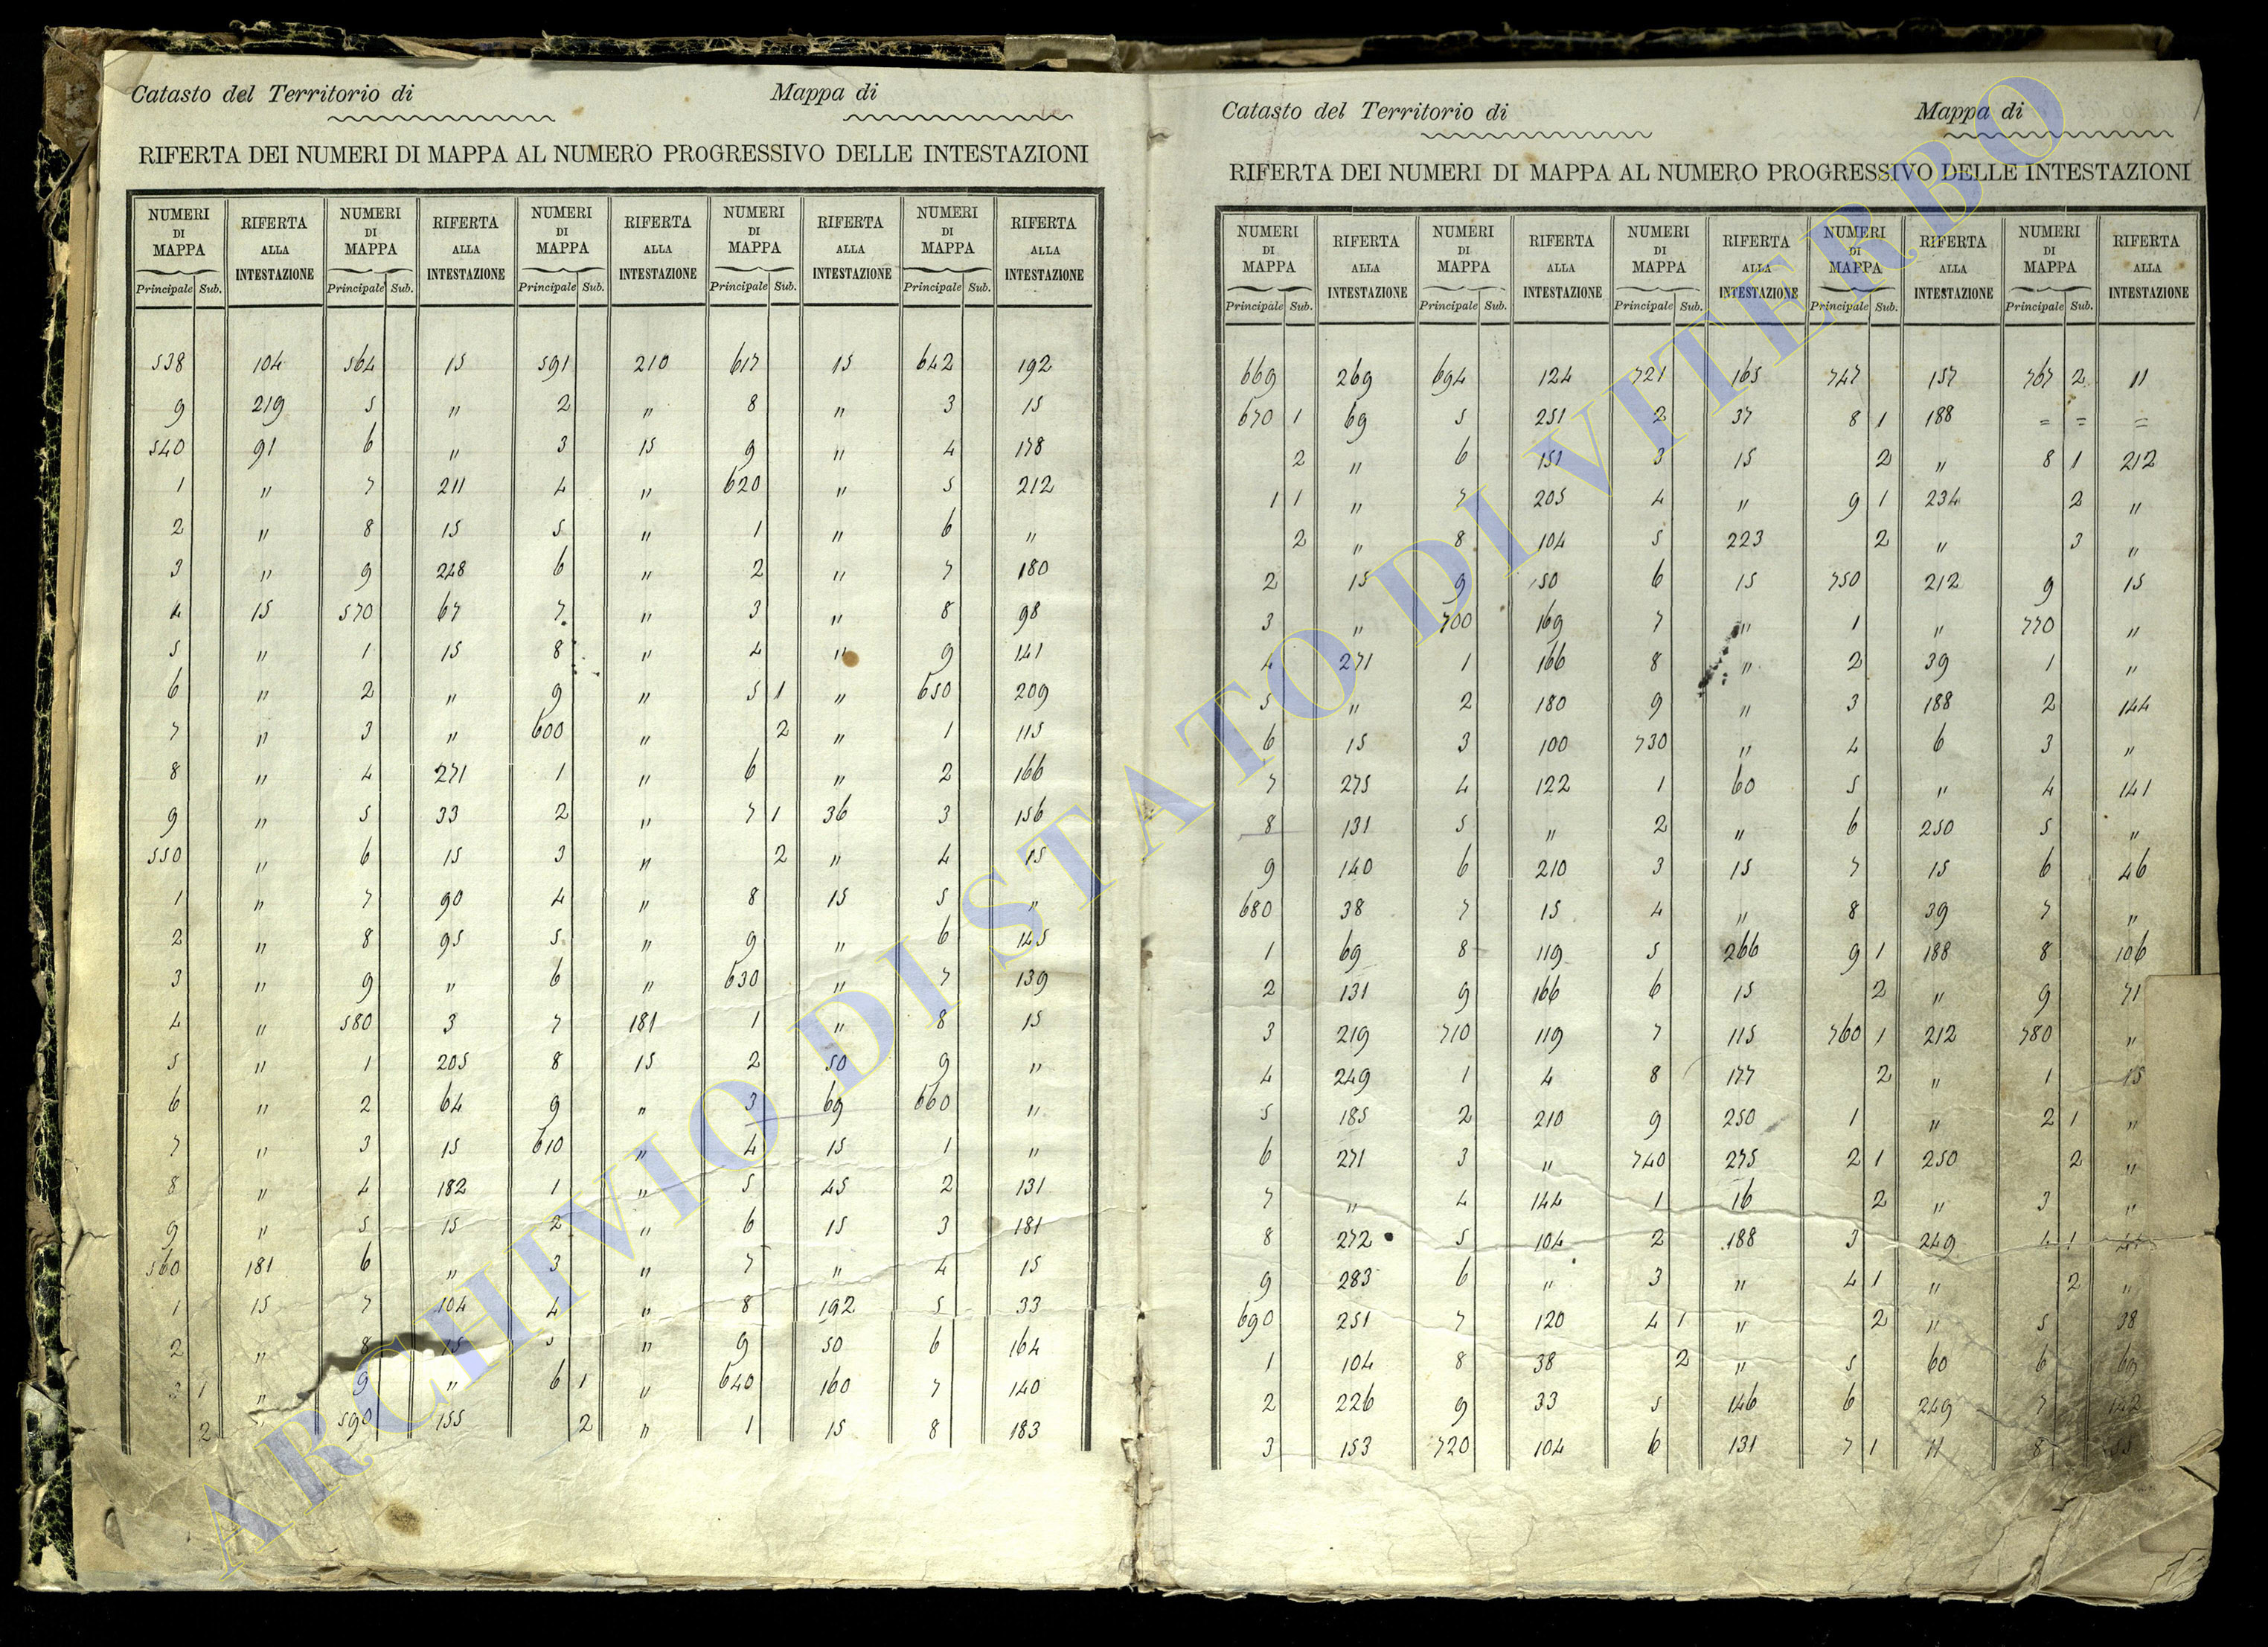 Catasto del Territorio di Mappa di
RIFERTA DEI NUMERI DI MAPPA AL NUMERO PROGRESSIVO DELLE INTESTAZIONI
NUMERI DI MAPPA RIFERTA ALLA INTESTAZIONE NUMERI DI MAPPA RIFERTA ALLA INTESTAZIONE NUMERI DI MAPPA RIFERTA ALLA INTESTAZIONE NUMERI DI MAPPA RIFERTA ALLA INTESTAZIONE NUMERI DI MAPPA RIFERTA ALLA INTESTAZIONE
Principale Sub. Principale Sub. Principale Sub. Principale Sub. Principale Sub.
538 104 564 15 591 210 617 15 642 192
9 219 5 " 2 " 8 " 3 15
540 91 6 " 3 15 9 " 4 178
1 " 7 211 4 " 620 " 5 212
2 " 8 15 5 " 1 " 6 "
3 " 9 248 6 " 2 " 7 180
4 15 570 67 7 " 3 " 8 98
5 " 1 15 8 " 4 " 9 141
6 " 2 " 9 " 5 1 " 650 209
7 " 3 " 600 " 2 " 1 115
8 " 4 271 1 " 6 " 2 166
9 " 5 33 2 " 7 1 36 3 156
550 " 6 15 3 " 2 " 4 15
1 " 7 90 4 " 8 15 5 "
2 " 8 95 5 " 9 " 6 145
3 " 9 " 6 " 630 " 7 139
4 " 580 3 7 181 1 " 8 15
5 " 1 205 8 15 2 50 9 "
6 " 2 64 9 " 3 69 660 "
7 " 3 15 610 " 4 15 1 "
8 " 4 182 1 " 5 45 2 131
9 " 5 15 2 " 6 15 3 181
560 181 6 " 3 " 7 " 4 15
1 15 7 104 4 " 8 192 5 33
2 " 8 15 5 " 9 50 6 164
3 1 " 9 " 6 1 " 640 160 7 140
2 " 590 155 2 " 1 15 8 183
Catasto del Territorio di Mappa di
RIFERTA DEI NUMERI DI MAPPA AL NUMERO PROGRESSIVO DELLE INTESTAZIONI
NUMERI DI MAPPA RIFERTA ALLA INTESTAZIONE NUMERI DI MAPPA RIFERTA ALLA INTESTAZIONE NUMERI DI MAPPA RIFERTA ALLA INTESTAZIONE NUMERI DI MAPPA RIFERTA ALLA INTESTAZIONE NUMERI DI MAPPA RIFERTA ALLA INTESTAZIONE
Principale Sub. Principale Sub. Principale Sub. Principale Sub. Principale Sub.
669 269 694 124 721 165 747 157 767 2 11
670 1 69 5 251 2 37 8 1 188 = = =
2 " 6 151 3 15 2 " 8 1 212
1 1 " 7 205 4 " 9 1 234 2 "
2 " 8 104 5 223 2 " 3 "
2 15 9 150 6 15 750 212 9 15
3 " 700 169 7 " 1 " 770 "
4 271 1 166 8 " 2 39 1 "
5 " 2 180 9 " 3 188 2 144
6 15 3 100 730 " 4 6 3 "
7 275 4 122 1 60 5 " 4 141
8 131 5 " 2 " 6 250 5 "
9 140 6 210 3 15 7 15 6 46
680 38 7 15 4 " 8 39 7 "
1 69 8 119 5 266 9 1 188 8 106
2 131 9 166 6 15 2 " 9 71
3 219 710 119 7 115 760 1 212 780 "
4 249 1 4 8 177 2 " 1 15
5 185 2 210 9 250 1 " 2 1 "
6 271 3 " 740 275 2 1 250 2 "
7 " 4 144 1 16 2 " 3 "
8 272 5 104 2 188 3 249 4 1
9 283 6 " 3 " 4 1 " 2 "
690 251 7 120 4 1 " 2 " 5 38
1 104 8 38 2 " 5 60 6 69
2 226 9 33 5 146 6 249 7 142
3 153 720 104 6 131 7 1 11 8
ARCHIVIO DI STATO DI VITERBO